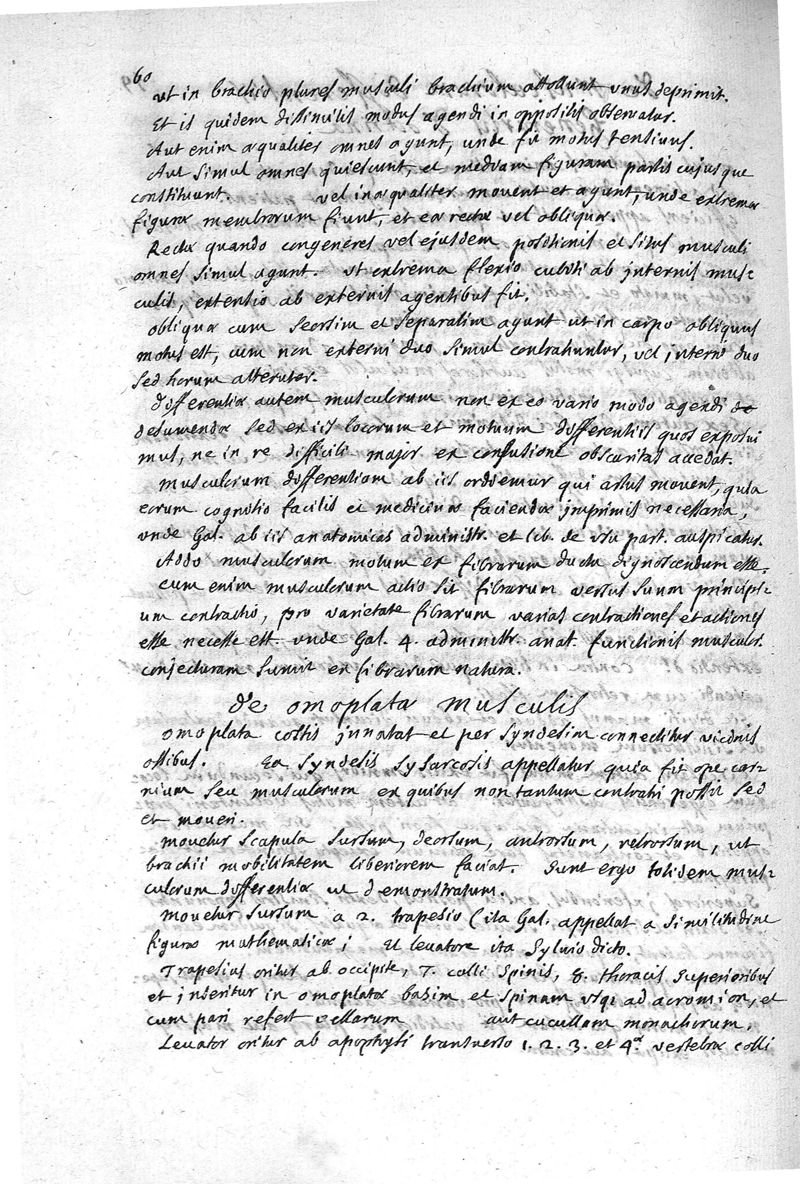 60
ut in brachio plures musculi brachium attollunt unus deprimit.
Et is quidem dissimilis modus agendi in oppositis observatur.
Aut enim aequaliter omnes agunt, unde fit motus tensivus.
Aut simul omnes quiescunt, et mediam figuram partis cujusque
constituunt. vel inaequaliter movent et agunt, unde extremae
figurae membrorum fiunt, et eae rectae vel obliquae.
Rectae quando congeneres vel ejusdem positionis et situs musculi
omnes simul agunt. ut extrema flexio cubiti ab internis mus-
culis, extensio ab externis agentibus fit.
obliquae cum seorsim et separatim agunt ut in carpo obliquus
motus est, cum non externi duo simul contrahuntur, vel interni duo
sed horum alteruter.
differentiae autem musculorum non ex eo vario modo agendi de
desumendae sed ex iis locorum et motuum differentiis quos exposui
mus, ne in re difficili major ex confusione obscuritas accedat.
musculorum differentiam ab iis ordiemur qui artus movent, quia
eorum cognitio facilis et medicinae faciendae imprimis necessaria,
unde Gal. ab iis anatomicas administr. et lib. de usu part. auspicatur.
Addo musculorum motum ex fibrarum ductu dignoscendum esse.
cum enim musculorum actio sit fibrarum versus suum principi-
um contractio, pro varietate fibrarum varias contractiones et actiones
esse necesse est. unde Gal. 4. administr. anat. functionis musculor.
conjecturam sumit ex fibrarum natura.
de omoplata musculis
omoplata costis innatat et per syndesin connectitur vicinis
ossibus. Ea syndesis syssarcosis appellatur quia fit ope car-
nium seu musculorum ex quibus non tantum contrahi possit sed
et moveri.
movetur scapula sursum, deorsum, antrorsum, retrorsum, ut
brachii mobilitatem liberiorem faciat. Sunt ergo totidem mus-
culorum differentiae ut demonstratum.
movetur sursum a 2. trapesio (ita Gal. appellat a similitudine
figurae mathematicae; et levatore ita Sylvio dicto.
Trapesius oritur ab occipite, 7. colli spinis, 8. thoracis superioribus
et inseritur in omoplatae basim et spinam usqi ad acromion, et
cum pari refert aut cucullam monachorum.
Levator oritur ab apophysi transverso 1. 2. 3. et 4ae vertebrae colli